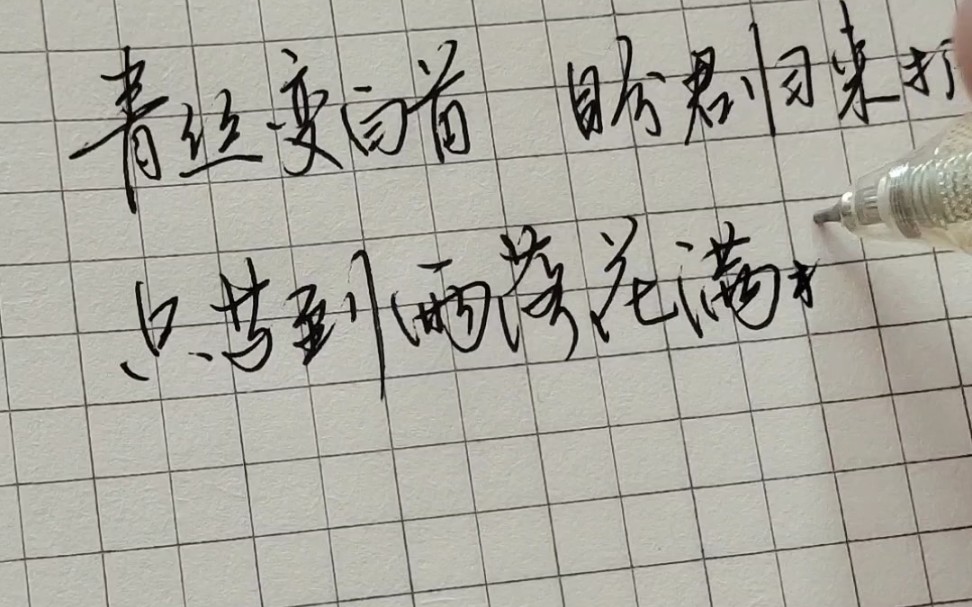 青丝变白首 盼君归来
只等到雨落花满